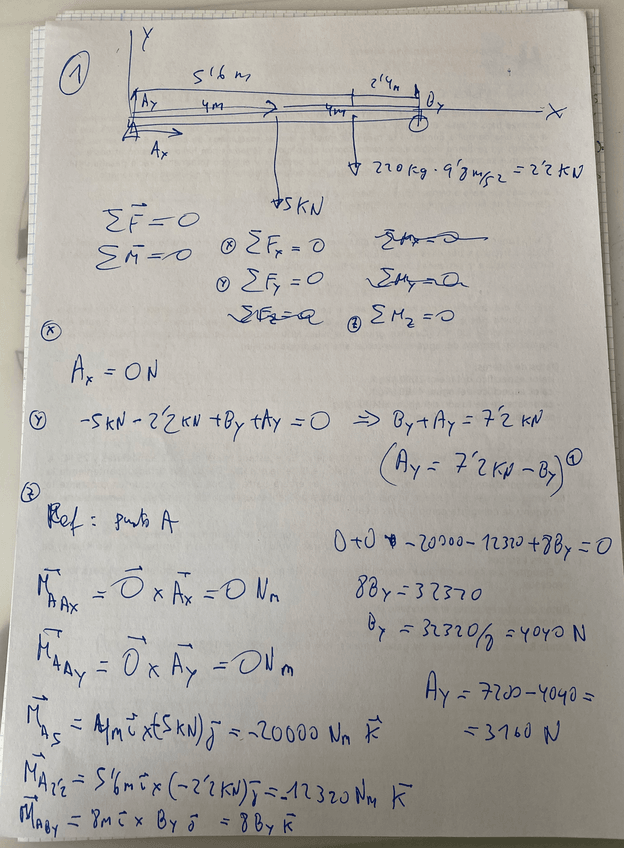 1
Y
5'6 m
2'4m
Ay
By
4m
4m
X
Ax
220kg · 9'8 m/s2 = 2'2 KN
5KN
ΣF⃗ = 0
ΣM⃗ = 0
Ⓧ ΣFx = 0 ΣMx = 0
Ⓨ ΣFy = 0 ΣMy = 0
ΣFz = 0 Ⓩ ΣMz = 0
Ⓧ
Ax = 0N
Ⓨ -5KN - 2'2KN + By + Ay = 0 => By + Ay = 7'2 KN
(Ay = 7'2KN - By) ①
Ⓩ
Ref: punto A
0+0 -20000-12320+8By = 0
M⃗AAx = 0⃗ x A⃗x = 0 Nm
8By = 32320
By = 32320/8 = 4040 N
M⃗AAy = 0⃗ x A⃗y = 0Nm
Ay = 7200-4040 =
= 3160 N
M⃗A5 = 4m i⃗ x (-5KN) j⃗ = -20000 Nm K⃗
M⃗A2'2 = 5'6m i⃗ x (-2'2KN) j⃗ = -12320 Nm K⃗
M⃗ABy = 8m i⃗ x By j⃗ = 8By K⃗